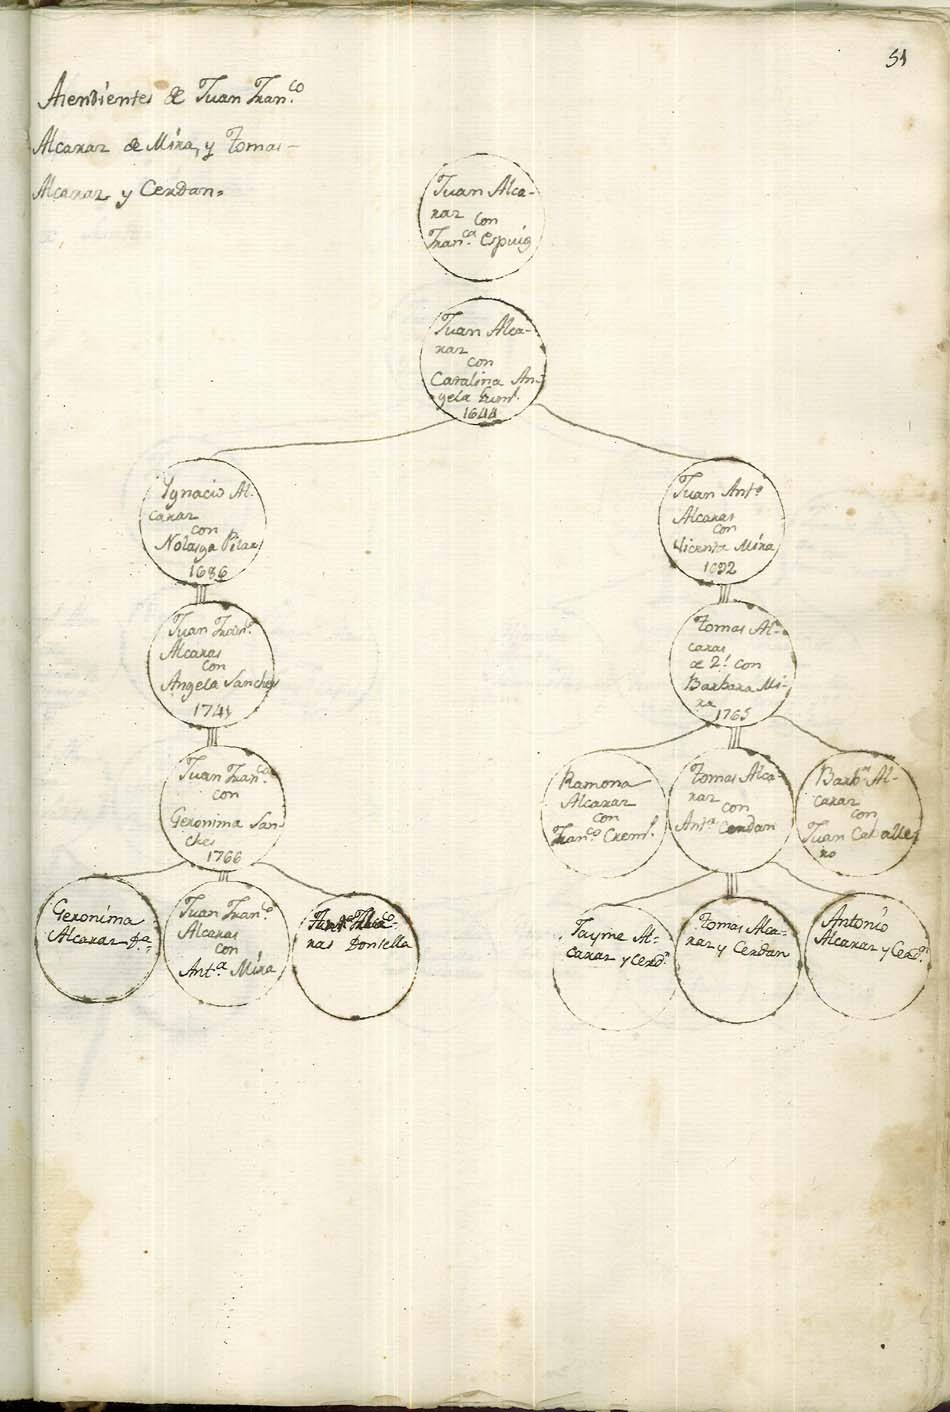 51
Asendientes de Juan Fran.co
Alcaraz de Mira, y Tomas
Alcaraz y Cerdan=
Juan Alca-
raz con
Fran.ca Espuig
Juan Alca-
raz
con
Catalina An-
gela
1644
Ygnacio Al-
caraz
con
Pilar
1686
Juan Ant.o
Alcaras
con
Vicenta Mira
1692
Juan Fran.co
Alcaras
con
Angela Sanches
1741
Tomas Al-
caras
de 2.s con
Barbara Mi-
ra 1765
Juan Fran.co
con
Geronima San-
ches
1766
Ramona
Alcaraz
con
Fran.co
Tomas Alca-
raz
con
Ant.a Cerdan
Barb.a Al-
caraz
con
Juan Caballe
ro
Geronima
Alcaraz D.a
Juan Fran.co
Alcaras
con
Ant.a Mira
ras Donsella
Jayme Al-
caraz y Cerd.n
Tomas Alca-
raz y Cerdan
Antonio
Alcaraz y Cerd.n